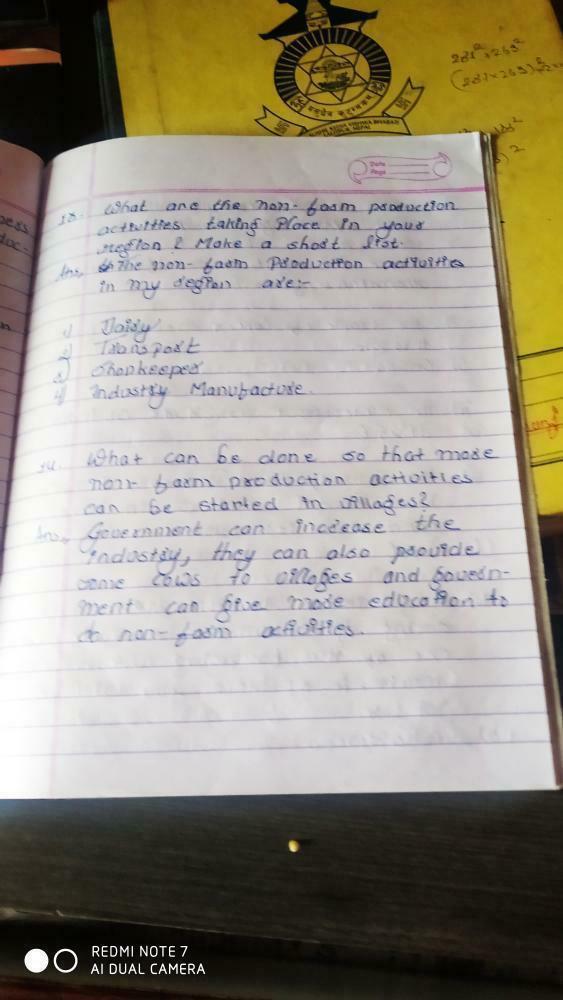 201² + 269²
(201×269)
वसुधैव कुटुम्बकम्
Date
Page
13. What are the non-farm production
activities taking place in your
region? Make a short list.
Ans. The non-farm Production activities
in my region are:-
1) Dairy
2) Transport
3) Shopkeeper
4) Industry Manufacture.
14. What can be done so that more
non-farm production activities
can be started in villages?
Ans. Government can increase the
industry, they can also provide
some cows to villages and govern-
ment can give more education to
do non-farm activities.
REDMI NOTE 7
AI DUAL CAMERA